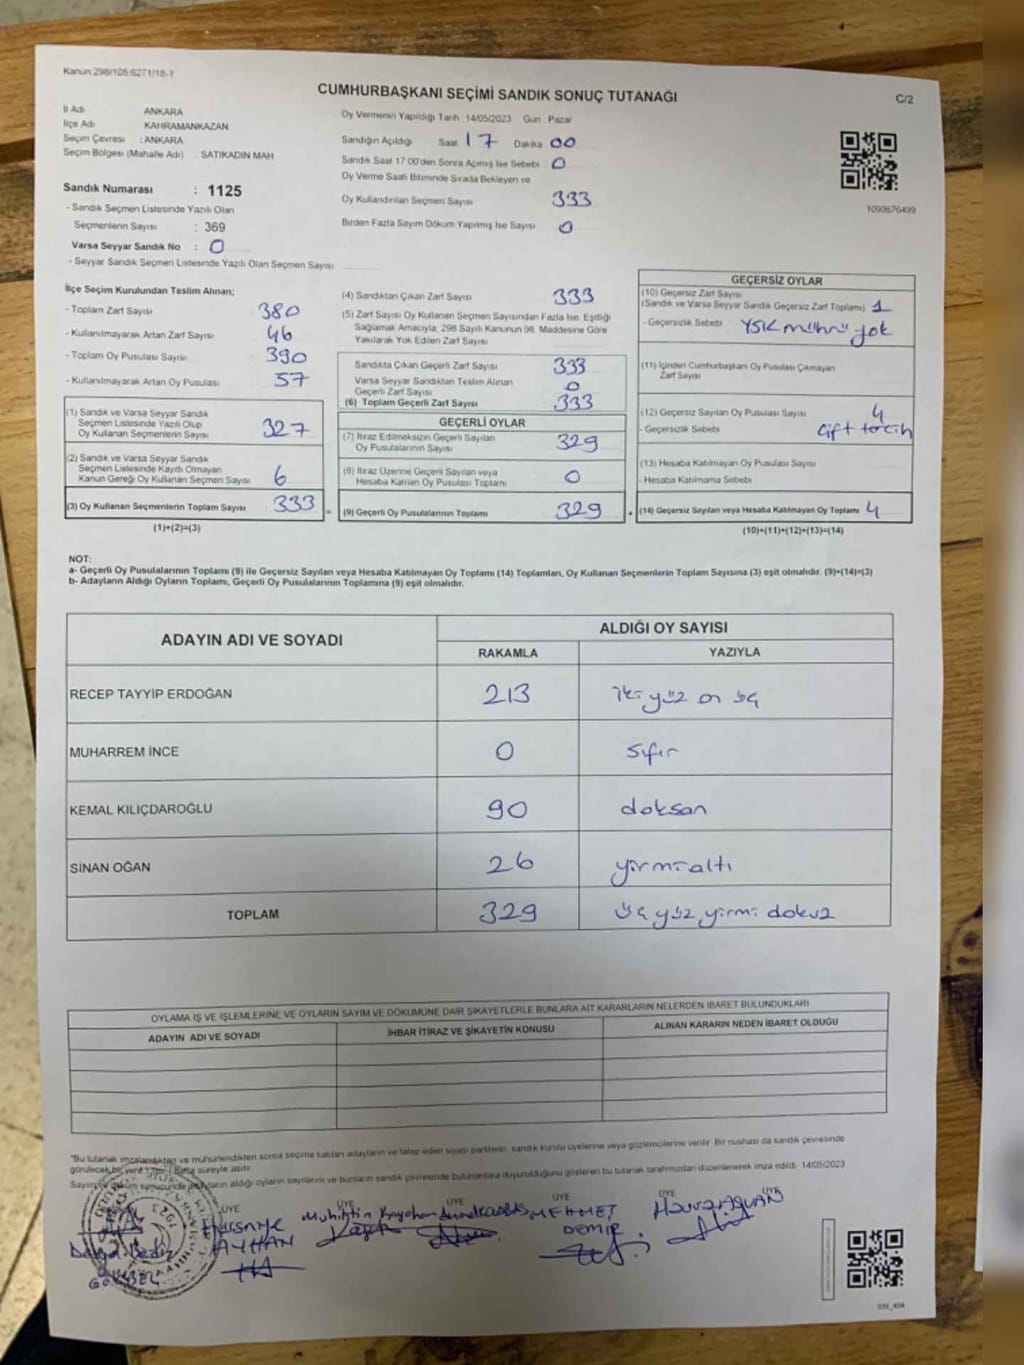 Kanun:298/105:6271/18-1
CUMHURBAŞKANI SEÇİMİ SANDIK SONUÇ TUTANAĞI
C/2
İl Adı ANKARA
İlçe Adı KAHRAMANKAZAN
Seçim Çevresi : ANKARA
Seçim Bölgesi (Mahalle Adı) : SATIKADIN MAH.
Sandık Numarası : 1125
- Sandık Seçmen Listesinde Yazılı Olan
Seçmenlerin Sayısı : 369
Varsa Seyyar Sandık No : 0
- Seyyar Sandık Seçmen Listesinde Yazılı Olan Seçmen Sayısı
Oy Vermenin Yapıldığı Tarih :14/05/2023 Gün Pazar
Sandığın Açıldığı Saat 17 Dakika 00
Sandık Saat 17.00'den Sonra Açılmış İse Sebebi 0
Oy Verme Saati Bitiminde Sırada Bekleyen ve
Oy Kullandırılan Seçmen Sayısı 333
Birden Fazla Sayım Döküm Yapılmış İse Sayısı 0
1093676499
İlçe Seçim Kurulundan Teslim Alınan;
- Toplam Zarf Sayısı 380
- Kullanılmayarak Artan Zarf Sayısı 46
- Toplam Oy Pusulası Sayısı 390
- Kullanılmayarak Artan Oy Pusulası 57
(1) Sandık ve Varsa Seyyar Sandık
Seçmen Listesinde Yazılı Olup
Oy Kullanan Seçmenlerin Sayısı 327
(2) Sandık ve Varsa Seyyar Sandık
Seçmen Listesinde Kayıtlı Olmayan
Kanun Gereği Oy Kullanan Seçmen Sayısı 6
(3) Oy Kullanan Seçmenlerin Toplam Sayısı 333
(1)+(2)=(3)
(4) Sandıktan Çıkan Zarf Sayısı 333
(5) Zarf Sayısı Oy Kullanan Seçmen Sayısından Fazla İse, Eşitliği
Sağlamak Amacıyla, 298 Sayılı Kanunun 98. Maddesine Göre
Yakılarak Yok Edilen Zarf Sayısı
Sandıkta Çıkan Geçerli Zarf Sayısı 333
Varsa Seyyar Sandıktan Teslim Alınan
Geçerli Zarf Sayısı 0
(6) Toplam Geçerli Zarf Sayısı 333
GEÇERLİ OYLAR
(7) İtiraz Edilmeksizin Geçerli Sayılan
Oy Pusulalarının Sayısı 329
(8) İtiraz Üzerine Geçerli Sayılan veya
Hesaba Katılan Oy Pusulası Toplamı 0
(9) Geçerli Oy Pusulalarının Toplamı 329
GEÇERSİZ OYLAR
(10) Geçersiz Zarf Sayısı
(Sandık ve Varsa Seyyar Sandık Geçersiz Zarf Toplamı) 1
- Geçersizlik Sebebi YSK mührü yok
(11) İçinden Cumhurbaşkanı Oy Pusulası Çıkmayan
Zarf Sayısı
(12) Geçersiz Sayılan Oy Pusulası Sayısı 4
- Geçersizlik Sebebi çift tercih
(13) Hesaba Katılmayan Oy Pusulası Sayısı
- Hesaba Katılmama Sebebi
(14) Geçersiz Sayılan veya Hesaba Katılmayan Oy Toplamı 4
(10)+(11)+(12)+(13)=(14)
NOT:
a- Geçerli Oy Pusulalarının Toplamı (9) ile Geçersiz Sayılan veya Hesaba Katılmayan Oy Toplamı (14) Toplamları, Oy Kullanan Seçmenlerin Toplam Sayısına (3) eşit olmalıdır. (9)+(14)=(3)
b- Adayların Aldığı Oyların Toplamı, Geçerli Oy Pusulalarının Toplamına (9) eşit olmalıdır.
ADAYIN ADI VE SOYADI ALDIĞI OY SAYISI
RAKAMLA YAZIYLA
RECEP TAYYİP ERDOĞAN 213 iki yüz on üç
MUHARREM İNCE 0 sıfır
KEMAL KILIÇDAROĞLU 90 doksan
SİNAN OĞAN 26 yirmi altı
TOPLAM 329 üç yüz yirmi dokuz
OYLAMA İŞ VE İŞLEMLERİNE VE OYLARIN SAYIM VE DÖKÜMÜNE DAİR ŞİKAYETLERLE BUNLARA AİT KARARLARIN NELERDEN İBARET BULUNDUKLARI
ADAYIN ADI VE SOYADI İHBAR İTİRAZ VE ŞİKAYETİN KONUSU ALINAN KARARIN NEDEN İBARET OLDUĞU
"Bu tutanak imzalandıktan ve mühürlendikten sonra seçime katılan adayların ve talep eden siyasi partilerin sandık kurulu üyelerine veya gözlemcilerine verilir. Bir nüshası da sandık çevresinde
görülecek bir yere 1 (bir) hafta süreyle asılır.
adayların aldığı oyların sayılarını ve bunların sandık çevresinde bulunanlara duyurulduğunu gösteren bu tutanak tarafımızdan düzenlenerek imza edildi. 14/05/2023
ÜYE ÜYE ÜYE ÜYE ÜYE
AYHAN MEHMET
DEMİR